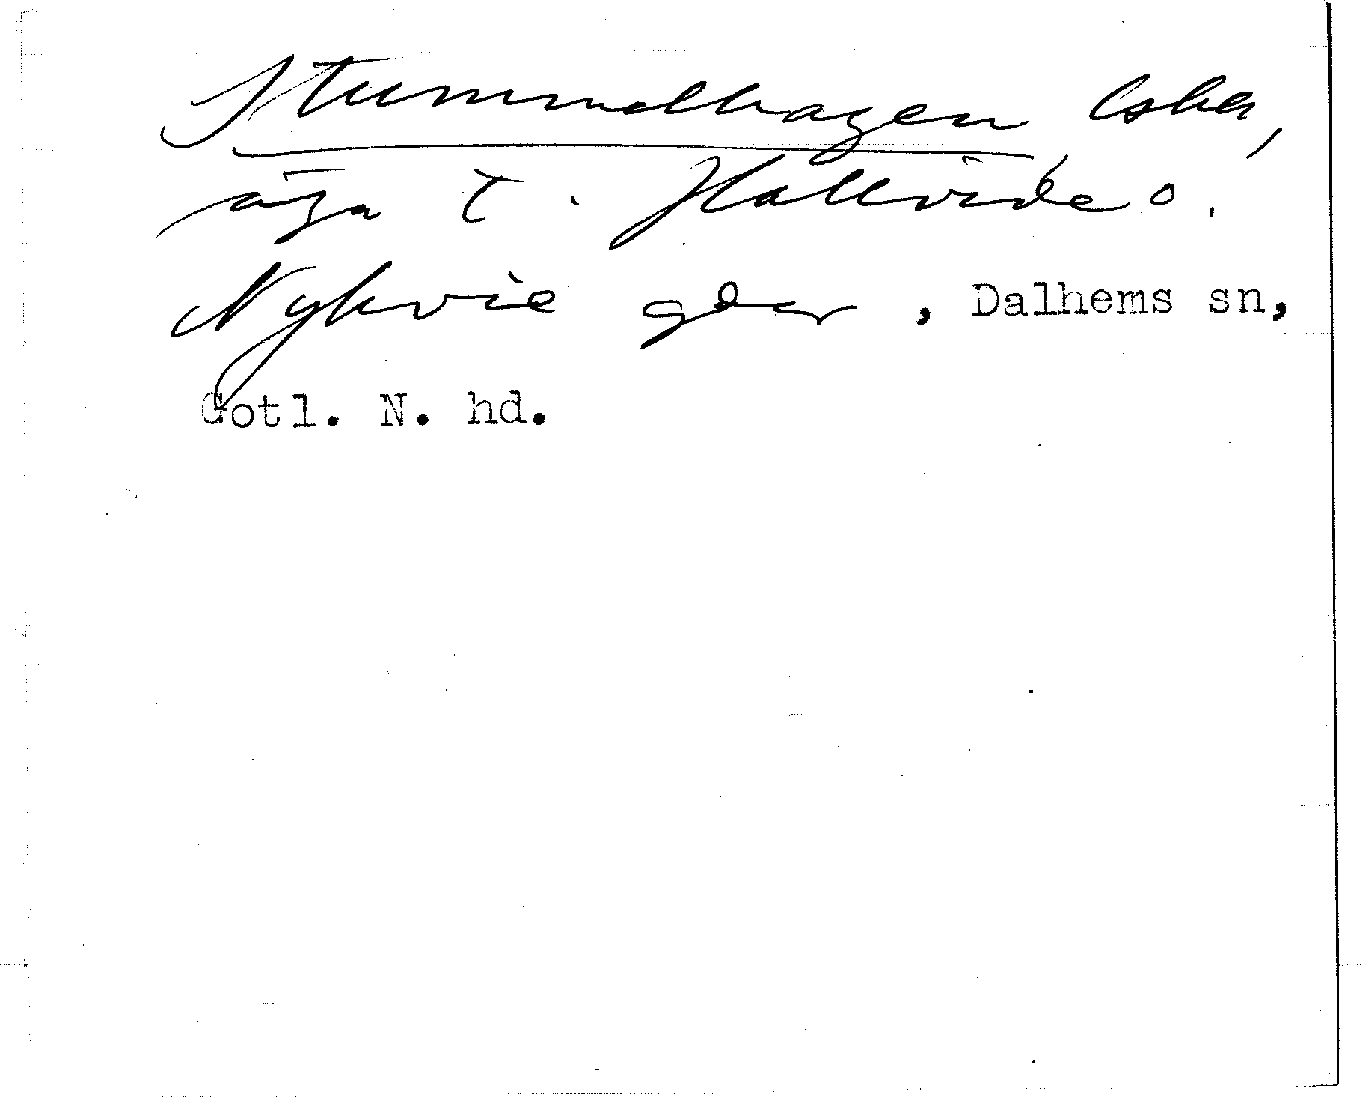 Stummelhagen Csker,
äga t. Hallvide o.
Nykvie gdar, Dalhems sn,
Gotl. N. hd.